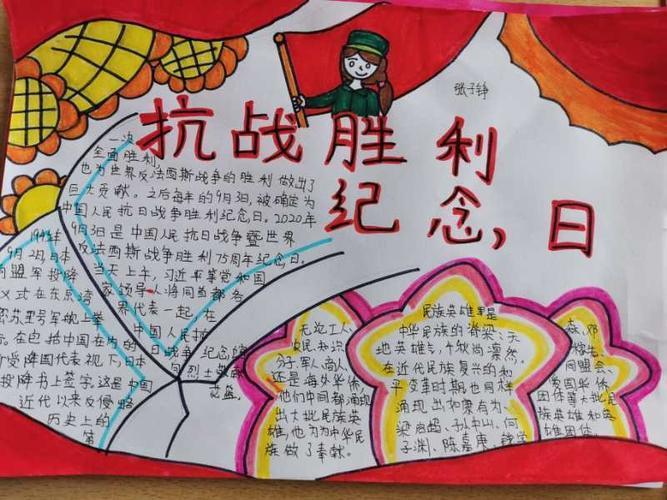 抗战胜利
纪念，日
张子铮
一次
全面胜利，
也为世界反法西斯战争的胜利做出了
巨大贡献。之后每年的9月3日，被确定为
中国人民抗日战争胜利纪念日。2020年
9月3日是中国人民抗日战争暨世界
反法西斯战争胜利75周年纪念日。
当天上午，习近平等党和国
家领导人将同首都各
界代表一起，在
中国人民抗
日战争纪念馆
向烈士敬献
花篮。
9月2日，日本
向盟军投降
仪式在东京湾
密苏里号军舰上举
行。在包括中国在内的
受降国代表视下，日本
投降书上签字。这是中国
近代以来反侵略
历史上的
第
无论工人、
农民、知识
分子、军人、商人，
还是海外华侨，
他们中间都涌现
出大批民族英
雄，也为为中华民
族做了奉献。
民族英雄是
中华民族的脊梁、天
地英雄气，千秋尚凛然。
在近代民族复兴的和
平变革时期也同样
涌现出如栗有为、
梁启超、孙中山、何
子渊、陈嘉庚、钱学
森、邓
稼先、
同盟会、
爱国华侨
团体等大批民
族英雄和英
雄团体。